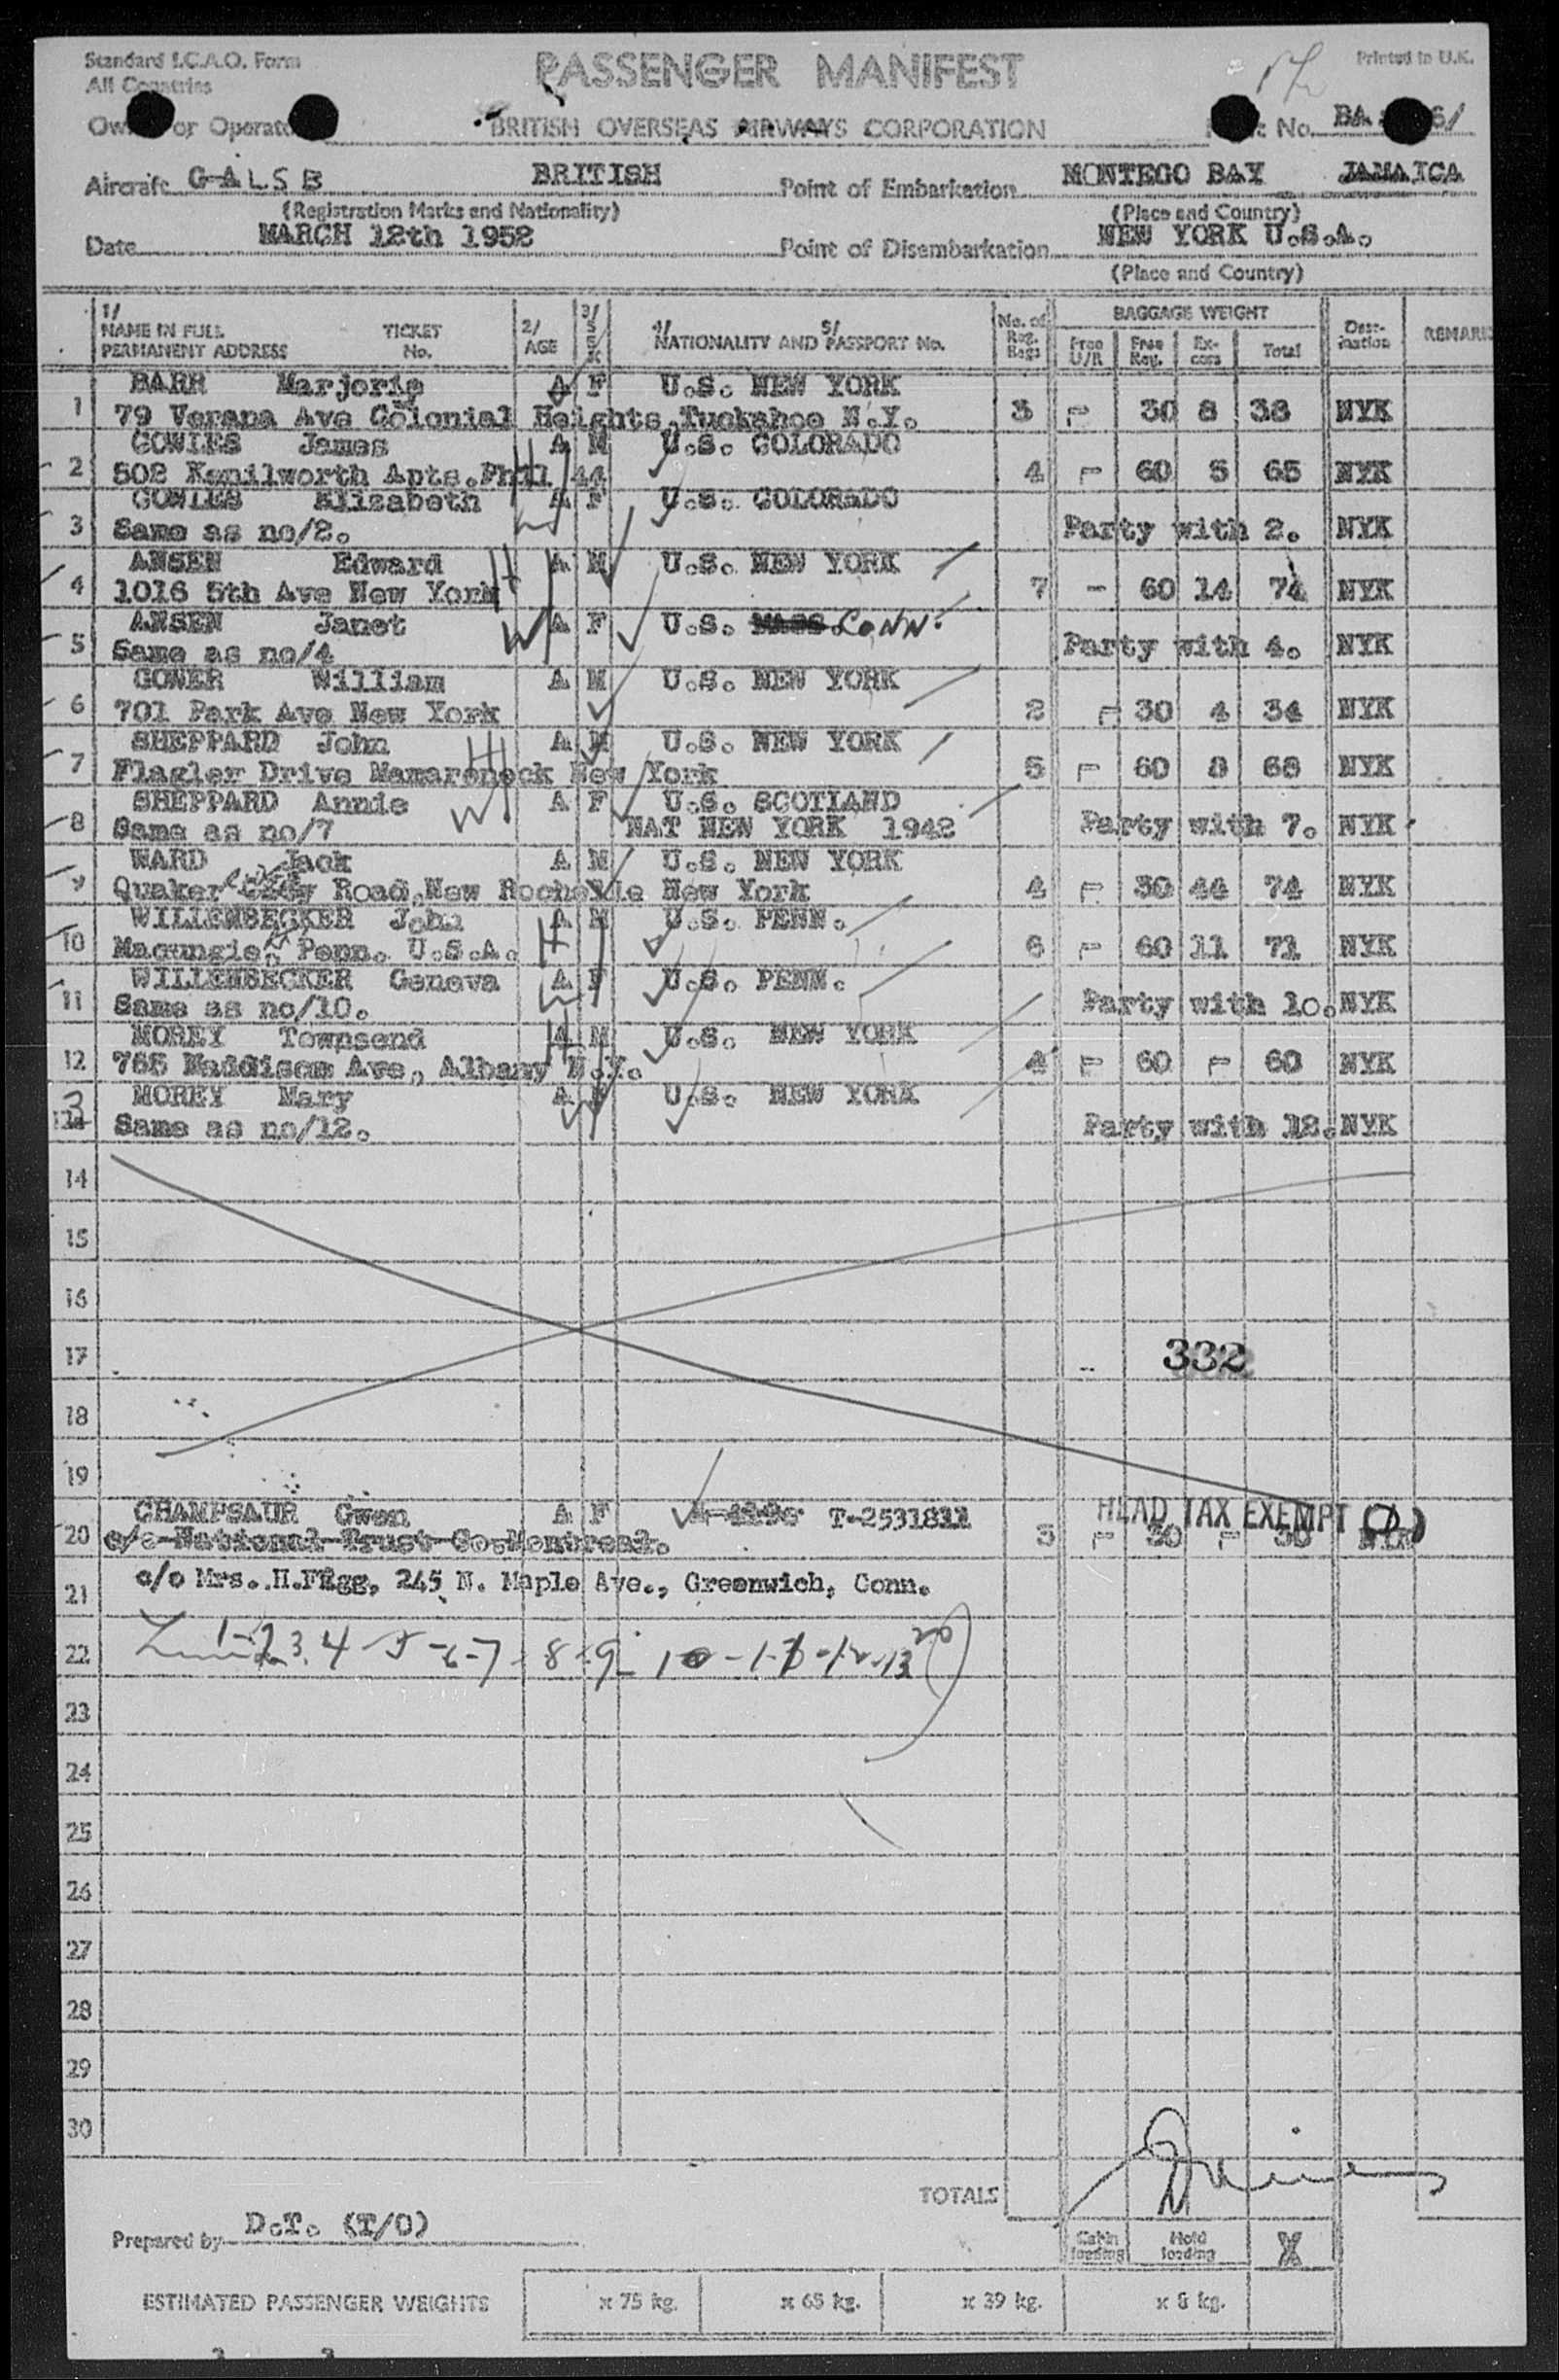 Standard I.C.A.O. Form
All Countries
PASSENGER MANIFEST
Printed in U.K.
or Operator
BRITISH OVERSEAS AIRWAYS CORPORATION
No. BA 6/
Aircraft G-ALSB BRITISH Point of Embarkation MONTEGO BAY JAMAICA
(Registration Marks and Nationality) (Place and Country)
Date MARCH 12th 1952 Point of Disembarkation NEW YORK U.S.A.
(Place and Country)
1/ NAME IN FULL PERMANENT ADDRESS TICKET No. 2/ AGE 3/ SEX 4/ NATIONALITY AND 5/ PASSPORT No. No. of Reg. Bags BAGGAGE WEIGHT Free U/R Free Reg. Ex-cess Total Dest-ination REMARK
BARR Marjorie A F U.S. NEW YORK
1 79 Verana Ave Colonial Heights, Tuckahoe N.Y. 3 - 30 8 38 NYK
COWLES James A M U.S. COLORADO
2 502 Kenilworth Apts. Phil 44 4 - 60 5 65 NYK
COWLES Elizabeth A F U.S. COLORADO
3 Same as no/2. Party with 2. NYK
ANSEN Edward A M U.S. NEW YORK
4 1016 5th Ave New York H 7 - 60 14 74 NYK
ANSEN Janet W A F U.S. MASS. CONN.
5 Same as no/4 Party with 4. NYK
GOWER William A M U.S. NEW YORK
6 701 Park Ave New York 2 - 30 4 34 NYK
SHEPPARD John H A M U.S. NEW YORK
7 Flagler Drive Mamaroneck New York 5 - 60 8 68 NYK
SHEPPARD Annie W A F U.S. SCOTLAND
8 Same as no/7 NAT NEW YORK 1942 Party with 7. NYK
WARD Jack A M U.S. NEW YORK
9 Quaker Road, New Rochelle New York 4 - 30 44 74 NYK
WILLENBECKER John A M U.S. PENN.
10 Macungie, Penn. U.S.A. H 6 - 60 11 71 NYK
WILLENBECKER Geneva A F U.S. PENN.
11 Same as no/10. W Party with 10. NYK
MOREY Townsend H A M U.S. NEW YORK
12 765 Maddison Ave, Albany N.Y. 4 - 60 - 60 NYK
MOREY Mary A F U.S. NEW YORK
13 Same as no/12. W Party with 12. NYK
14
15
16
17 332
18
19
CHAMPSAUR Gwen A F T-2531811 HEAD TAX EXEMPT
20 c/o National Trust Co. Montreal. 3 - 30 - 30 NYK
21 c/o Mrs. H. Figg, 245 N. Maple Ave., Greenwich, Conn.
22 1-2 3. 4 - 5 - 6 - 7 - 8 - 9 - 10 - 11 - 12 - 13 20
23
24
25
26
27
28
29
30
TOTALS
Prepared by D.T. (T/O)
Cabin loading Hold loading X
ESTIMATED PASSENGER WEIGHTS x 75 kg. x 65 kg. x 39 kg. x 8 kg.